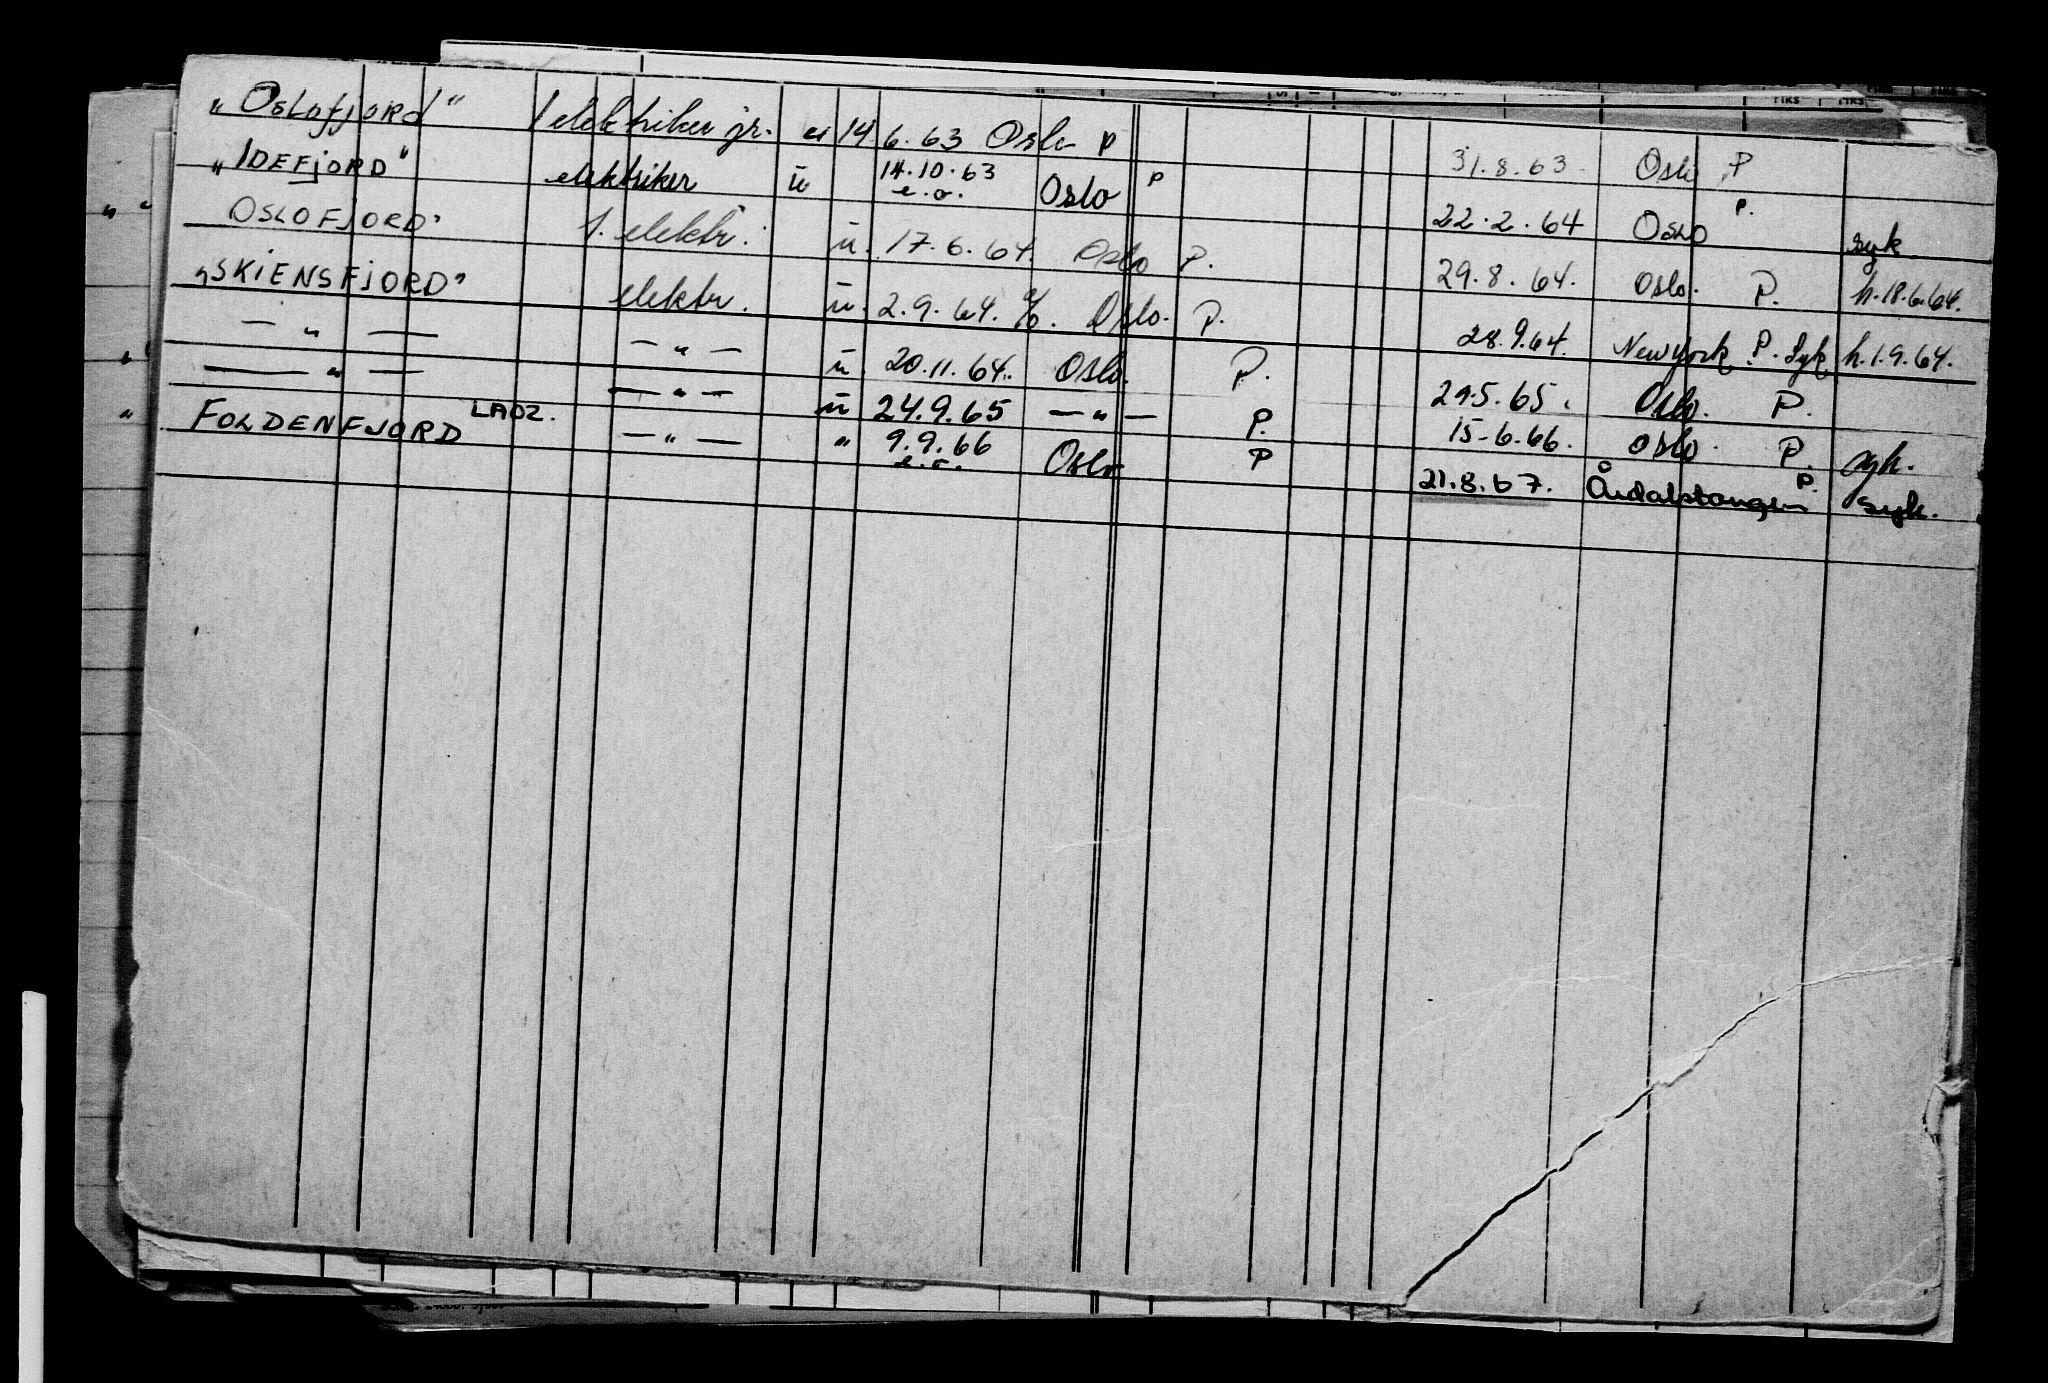 "Oslofjord" 1 elektriker jr. u 14 6.63 Oslo P 31.8.63. Oslo P
"IDEFJORD" elektriker u 14.10.63 e.o. Oslo P 22.2.64 Oslo P. syk
OSLOFJORD" 1. elektr. u. 17.6.64. Oslo P. 29.8.64. Oslo. P. h.18.6.64.
"SKIENSFJORD" elektr. u. 2.9.64. Oslo. P. 28.9.64. New york P. Syk h.1.9.64.
— " — — " — u. 20.11.64. Oslo. P. 29.5.65. Oslo. P.
— " — — " — u 24.9.65 — " — P. 15-6.66. Oslo. P. syk.
FOLDENFJORD LAOZ. — " — " 9.9.66 e.o. Oslo P 21.8.67. Årdalstangen P. syk.